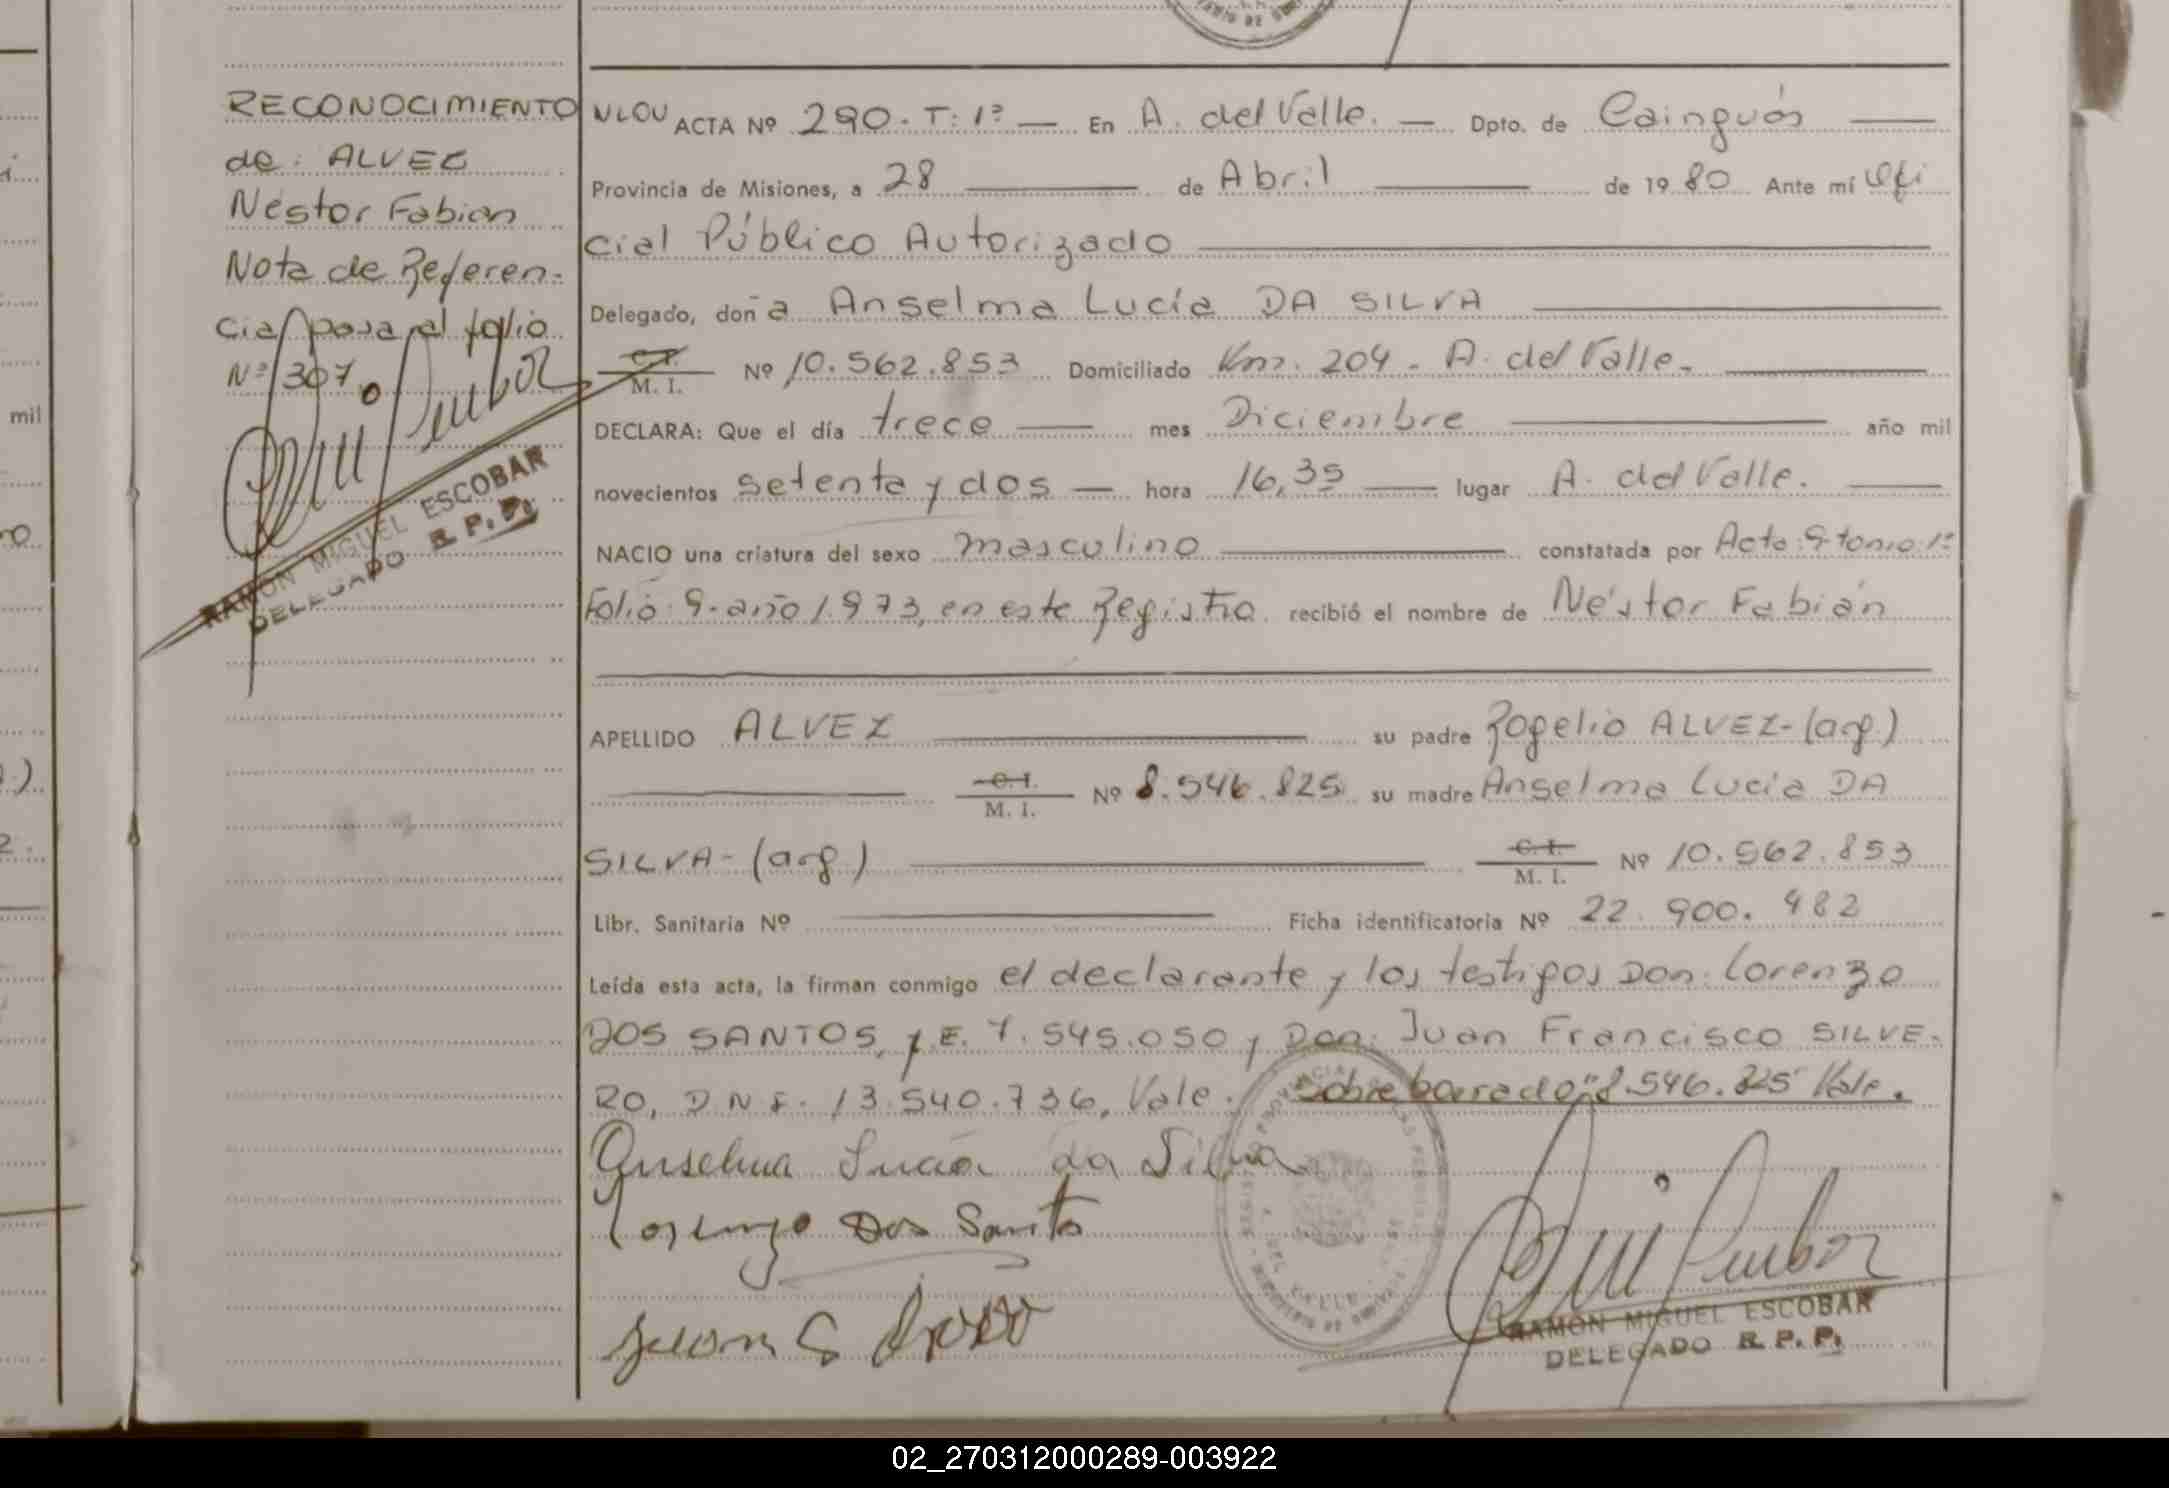 RECONOCIMIENTO
de: ALVEZ
Néstor Fabian
Nota de Referen-
cia pasa al folio
Nº 307.
RAMON MIGUEL ESCOBAR
DELEGADO R. P. P.
ACTA Nº 290. T: 1º — En A. del Valle. — Dpto. de Cainguás
Provincia de Misiones, a 28 de Abril de 1980 Ante mí Ofi
cial Público Autorizado
Delegado, doña Anselma Lucía DA SILVA
C. I. M. I. Nº 10.562.853 Domiciliado Km. 204 - A. del Valle.
DECLARA: Que el día trece mes Diciembre año mil
novecientos setenta y dos — hora 16,35 lugar A. del Valle.
NACIO una criatura del sexo masculino constatada por Acta: 9-tomo: 1º
Folio: 9-año 1.973, en este Registro. recibió el nombre de Néstor Fabián
APELLIDO ALVEZ su padre Rogelio ALVEZ-(arg.)
C. I. M. I. Nº 8.546.825 su madre Anselma Lucía DA
SILVA-(arg.) C. I. M. I. Nº 10.562.853
Libr. Sanitaria Nº Ficha identificatoria Nº 22.900.482
Leída esta acta, la firman conmigo el declarante y los testigos Don: Lorenzo
DOS SANTOS, .E. 7.545.050 y Don: Juan Francisco SILVE-
RO, D.N.I. 13.540.736, Vale. Sobre borrado "8.546.825" Vale.
Anselma Lucía da Silva
Lorenzo Dos Santos
Juan
RAMON MIGUEL ESCOBAR
DELEGADO R. P. P.
mil
02_270312000289-003922